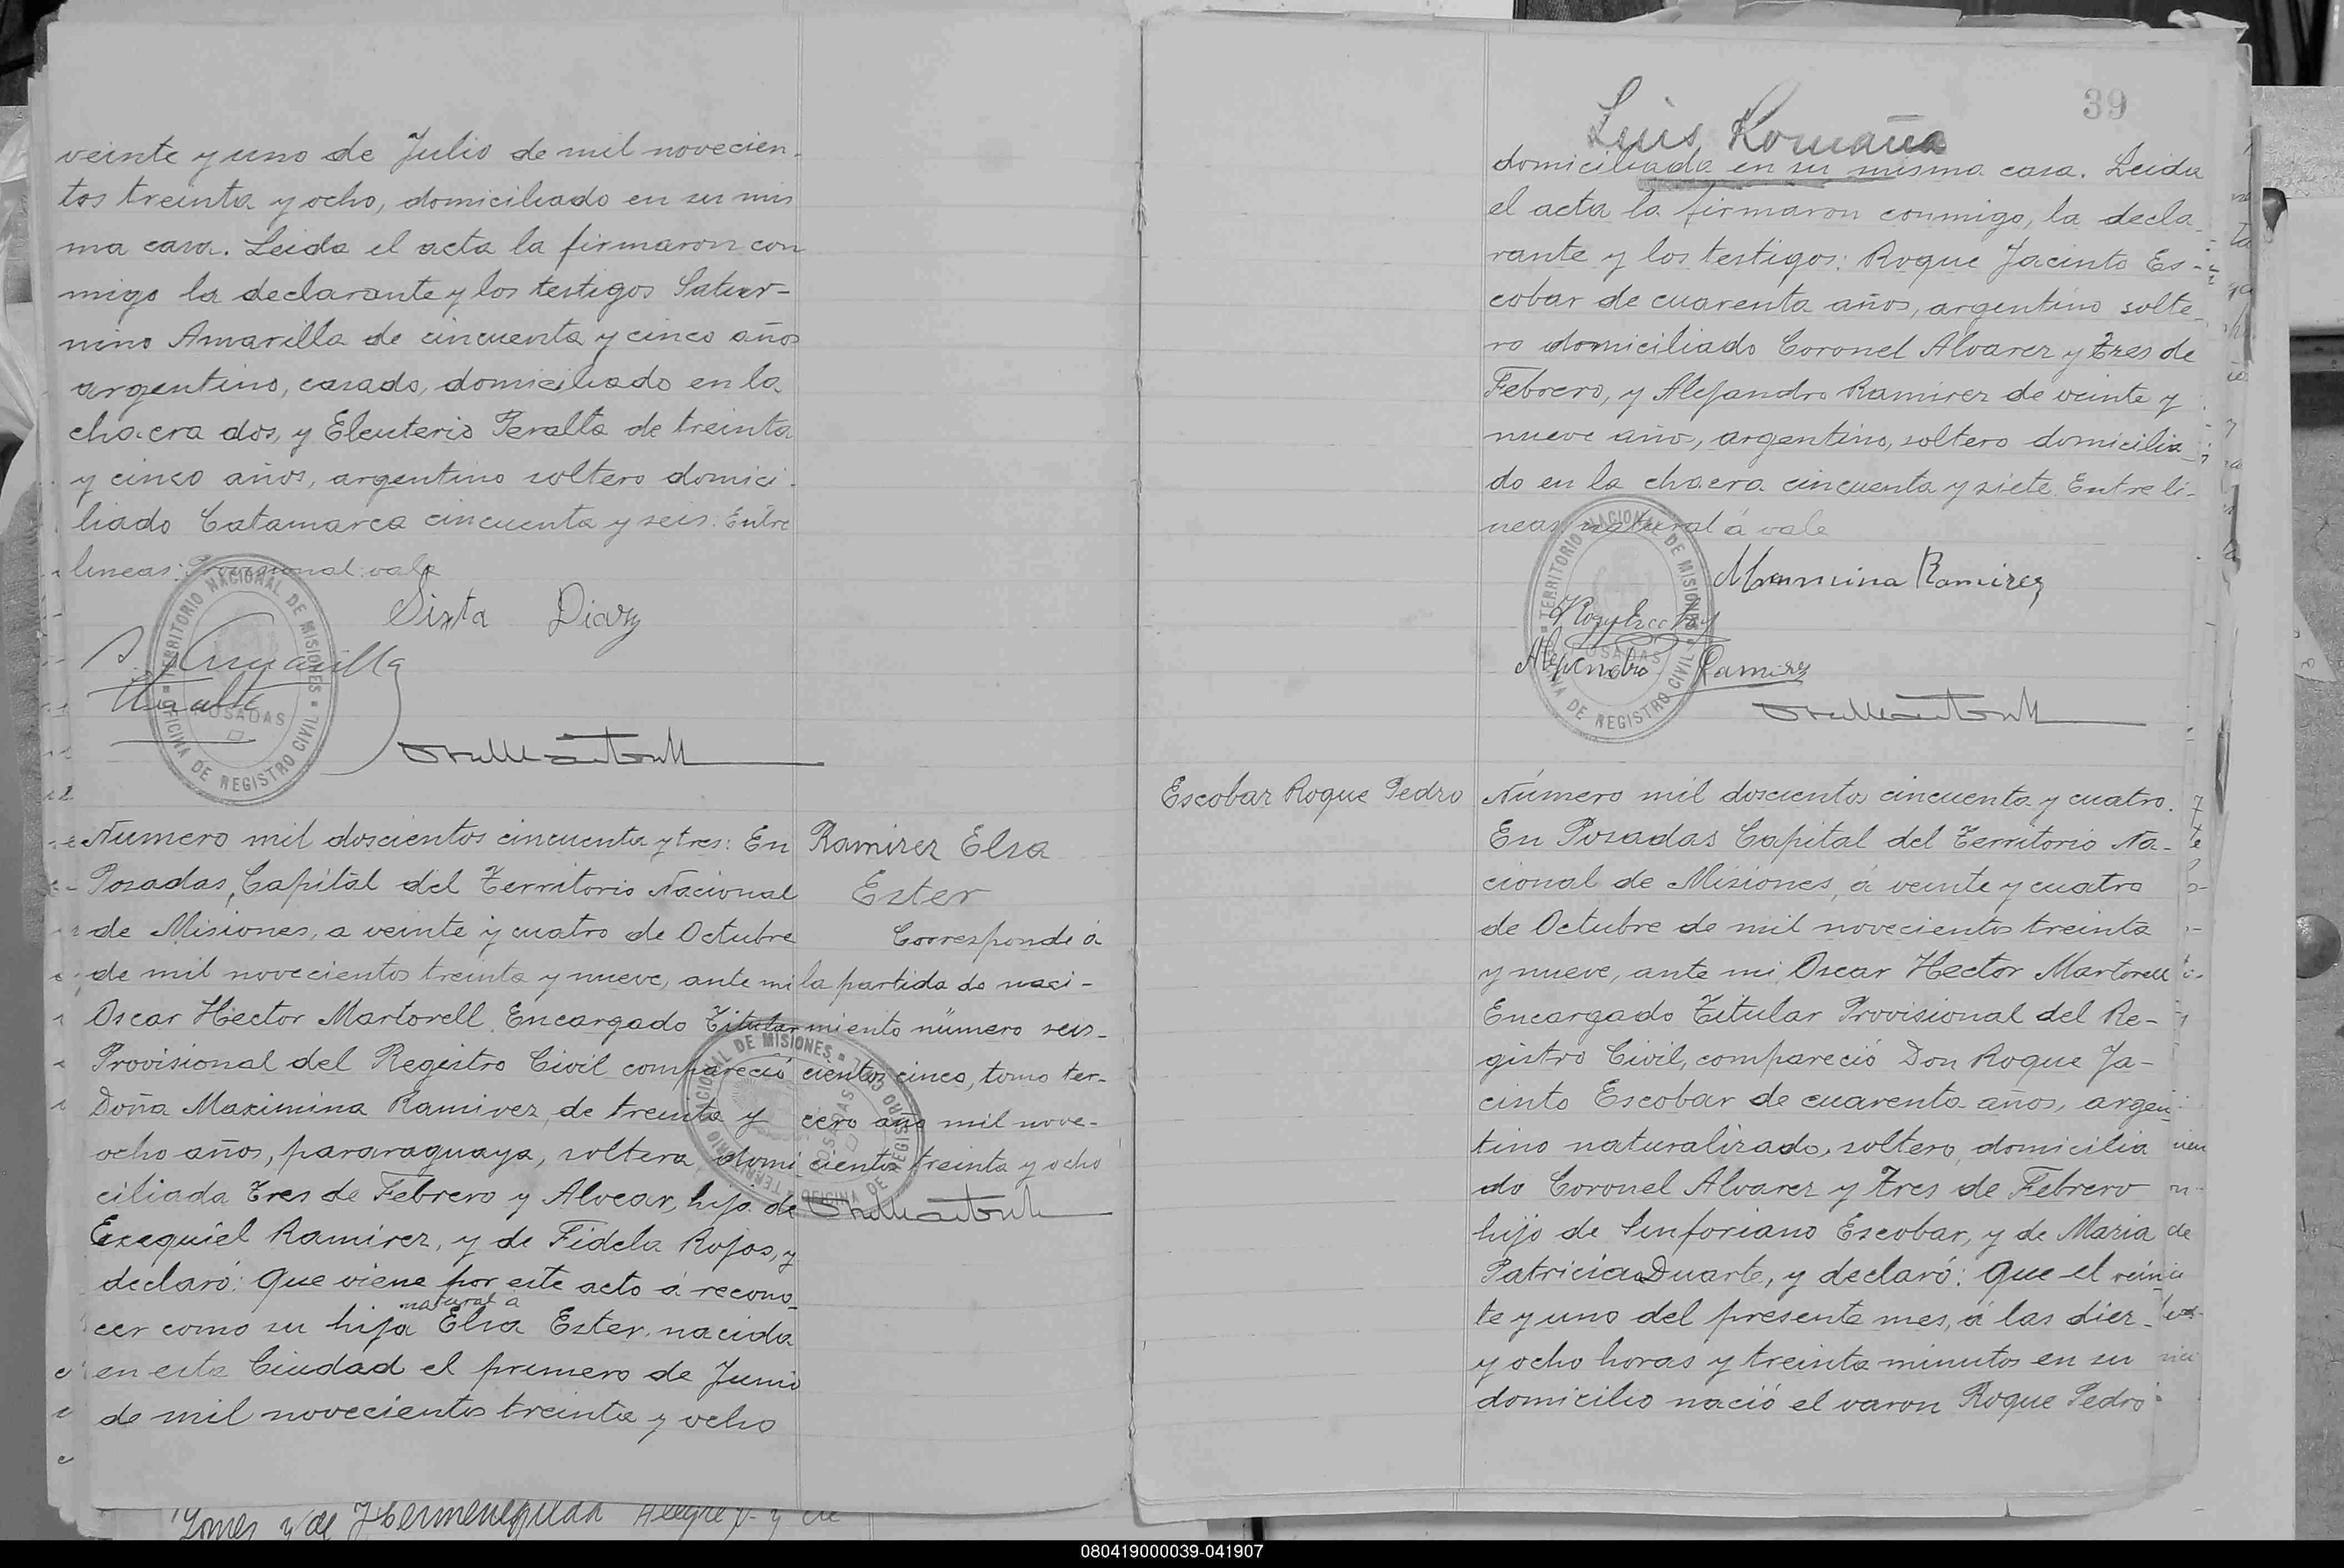 veinte y uno de Julio de mil novecien-
tos treinta y ocho, domiciliado en su mis
ma casa. Leida el acta la firmaron con
migo la declarante y los testigos Satur-
nino Amarilla de cincuenta y cinco años
argentino, casado, domiciliado en la
chacra dos, y Eleuterio Peralta de treinta
y cinco años, argentino soltero domici-
liado Catamarca cincuenta y seis: Entre
lineas: Provisional: vale
Sixta Diaz
TERRITORIO NACIONAL DE MISIONES
POSADAS
OFICINA DE REGISTRO CIVIL
Numero mil doscientos cincuenta y tres: En
Posadas, Capital del Territorio Nacional
de Misiones, a veinte y cuatro de Octubre
de mil novecientos treinta y nueve, ante mi
Oscar Hector Martorell Encargado Titular
Provisional del Registro Civil compareció
Doña Maximina Ramirez, de treinta y
ocho años, pararaguaya, soltera, domi
ciliada Tres de Febrero y Alvear, hija de
Ezequiel Ramirez, y de Fidela Rojas, y
declaró: Que viene por este acto á recono-
natural a
cer como su hija Elsa Ester, nacida
en esta Ciudad el primero de Junio
de mil novecientos treinta y ocho
Ramirez Elsa
Ester
Corresponde á
la partida de naci-
miento número seis-
cientos cinco, tomo ter-
cero año mil nove-
cientos treinta y ocho
TERRITORIO NACIONAL DE MISIONES
POSADAS
OFICINA DE REGISTRO CIVIL
39
Luis Romaña
domiciliada en su misma casa. Leida
el acta la firmaron conmigo, la decla-
rante y los testigos: Roque Jacinto Es-
cobar de cuarenta años, argentino solte-
ro domiciliado Coronel Alvarez y Tres de
Febrero, y Alejandro Ramirez de veinte y
nueve años, argentino, soltero domicilia-
do en la chacra cincuenta y siete. Entre li-
neas natural á vale
Maximina Ramirez
Alejandro Ramirez
TERRITORIO NACIONAL DE MISIONES
POSADAS
OFICINA DE REGISTRO CIVIL
Escobar Roque Pedro
Número mil doscientos cincuenta y cuatro.
En Posadas Capital del Territorio Na-
cional de Misiones, á veinte y cuatro
de Octubre de mil novecientos treinta
y nueve, ante mi, Oscar Hector Martorell
Encargado Titular Provisional del Re-
gistro Civil, compareció Don Roque Ja-
cinto Escobar de cuarenta años, argen-
tino naturalizado, soltero, domicilia
do Coronel Alvarez y Tres de Febrero
hijo de Sinforiano Escobar, y de Maria
Patricia Duarte, y declaró: Que el vein-
te y uno del presente mes, á las diez-
y ocho horas y treinta minutos en su
domicilio nació el varon Roque Pedro
Gomes y de Hermenegilda Alegre
080419000039-041907